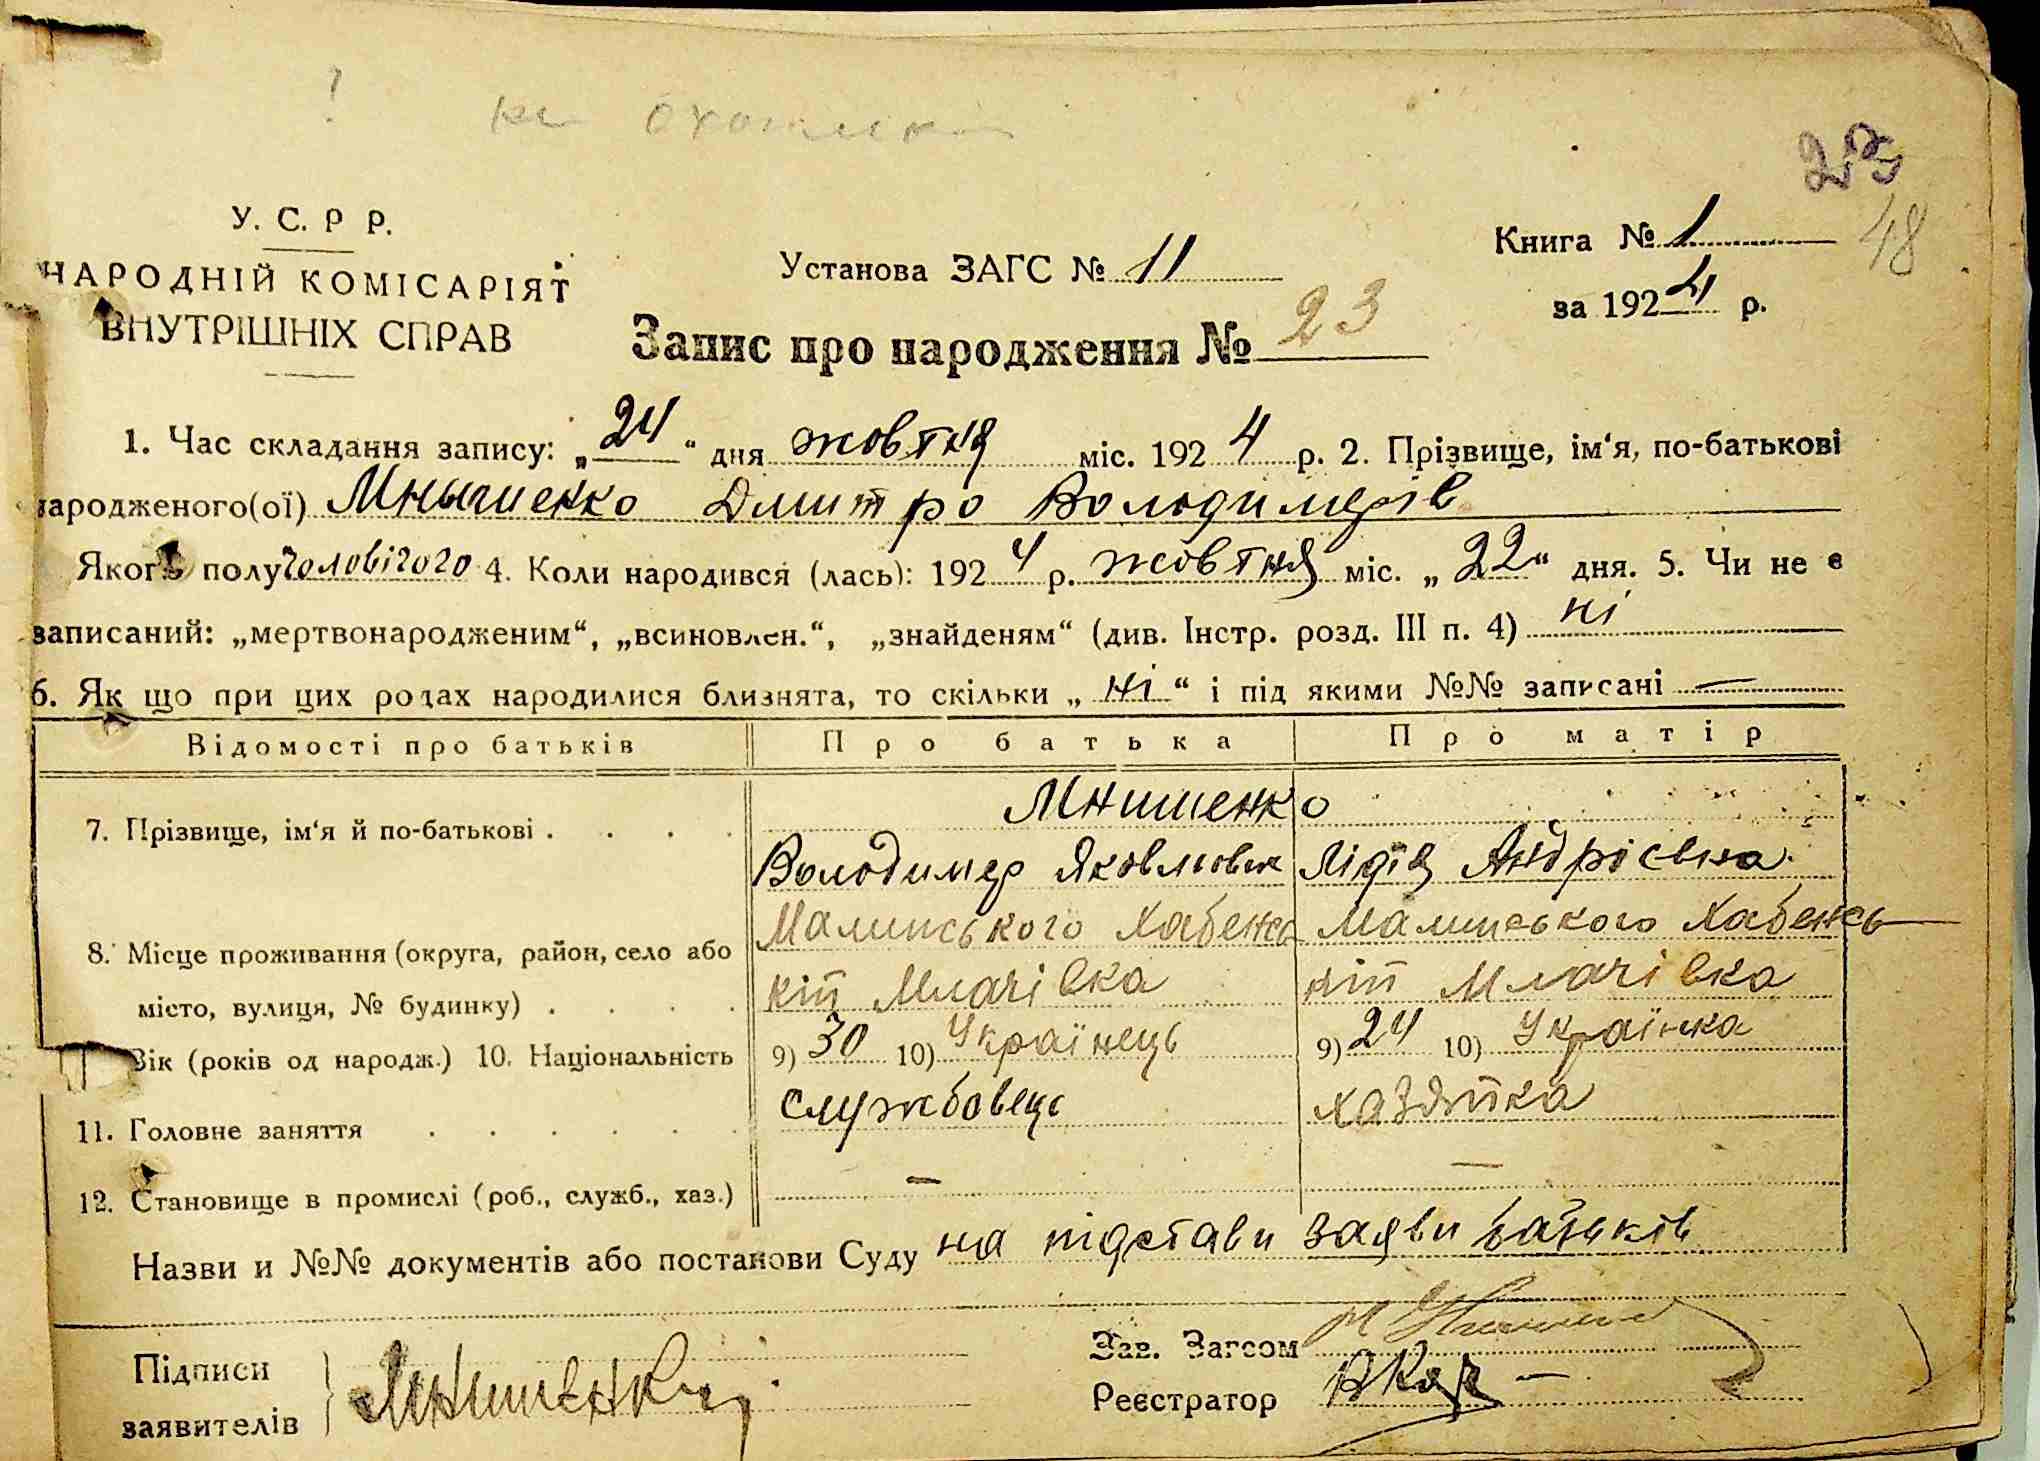 23
48
У. С. Р Р.
НАРОДНІЙ КОМІСАРІЯТ
ВНУТРІШНІХ СПРАВ
Установа ЗАГС № 11
Книга № 1
за 1924 р.
Запис про народження № 23
1. Час складання запису: „24“ дня жовтня міс. 1924 р. 2. Прізвище, ім‘я, по-батькові
народженого(ої) Мнышенко Дмитро Володимерів
Якого полу чоловічого 4. Коли народився (лась): 1924 р. жовтня міс. „22“ дня. 5. Чи не є
записаний: „мертвонародженим“, „всиновлен.“, „знайденям“ (див. Інстр. розд. III п. 4) ні
6. Як що при цих родах народилися близнята, то скільки „ні“ і під якими №№ записані —
Відомості про батьків Про батька Про матір
Мнишенко
7. Прізвище, ім‘я й по-батькові . . . .
Володимер Яковлевич Лідія Андрієвна
Малинського Хабенсь Малинського Хабенсь
8. Місце проживання (округа, район, село або
місто, вулиця, № будинку) . . . .
кій Млачівка кій Млачівка
Вік (років од народж.) 10. Національність 9) 30 10) Українець 9) 24 10) Українка
11. Головне заняття . . . . . . службовець хазяйка
12. Становище в промислі (роб., служб., хаз.) — —
Назви и №№ документів або постанови Суду на підстави заяви батьків
Підписи
заявителів
Мнишенко
Зав. Загсом
Реєстратор